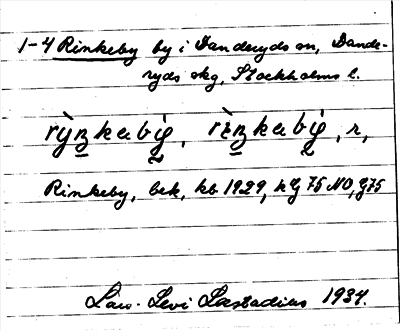 1-4 Rinkeby by i Danderyds sn, Dande-
ryds skg, Stockholms l.
rỳn̠kaby̌, rìn̠kaby̌, r,
Rinkeby, bek, kb 1929, hg 75 NO, G75
Lars-Levi Læstadius 1934.